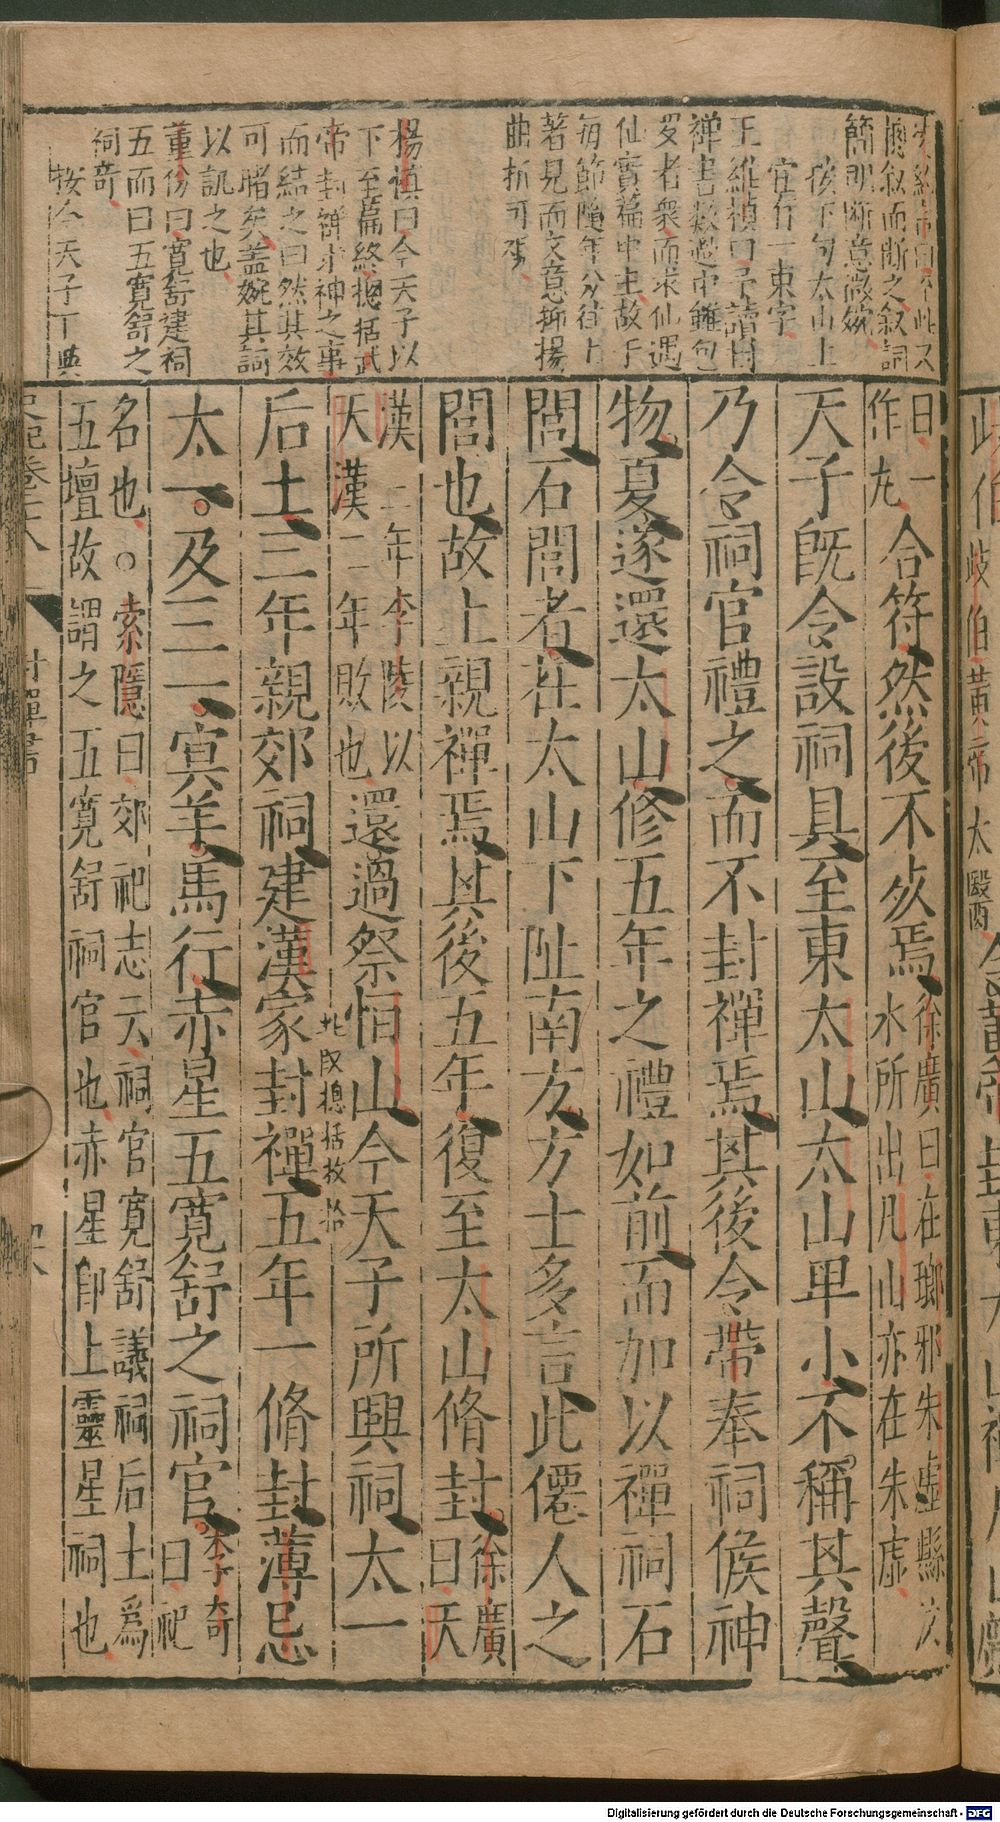 總叙而斷之叙詞
簡明斷意微婉
按下句太山上
宜有一東字
王維楨曰予讀封
禪書數過中雖包
叟者衆而求仙遇
仙實篇中主故于
每節隨年分往上
著見而文意抑揚
曲折可深
楊慎曰今天子以
下至篇終總括武
帝封禪求神之事
而結之曰然其效
可睹矣蓋婉其詞
以諷之也
董份曰寬舒建祠
五而曰五寬舒之
祠奇
按今天子丁典
曰一
作九
合符然後不死焉
徐廣曰在瑯邪朱虛縣汶
水所出凡山亦在朱虛
天子既令設祠具至東太山太山卑小不稱其聲
乃令祠官禮之而不封禪焉其後令帶奉祠候神
物夏遂還太山修五年之禮如前而加以禪祠石
閭石閭者在太山下阯南方方士多言此僊人之
閭也故上親禪焉其後五年復至太山脩封
徐廣
曰天
漢二年李陵以
天漢二年敗也
還過祭恒山今天子所興祠太一
此段總括收拾
后土三年親郊祠建漢家封禪五年一脩封薄忌
太一及三一冥羊馬行赤星五寬舒之祠官
李奇
曰祀
名也○索隱曰郊祀志云祠官寬舒議祠后土爲
五壇故謂之五寬舒祠官也赤星即上靈星祠也
史記卷二十八
封禪書
岐伯
黃帝太醫
Digitalisierung gefördert durch die Deutsche Forschungsgemeinschaft - DFG